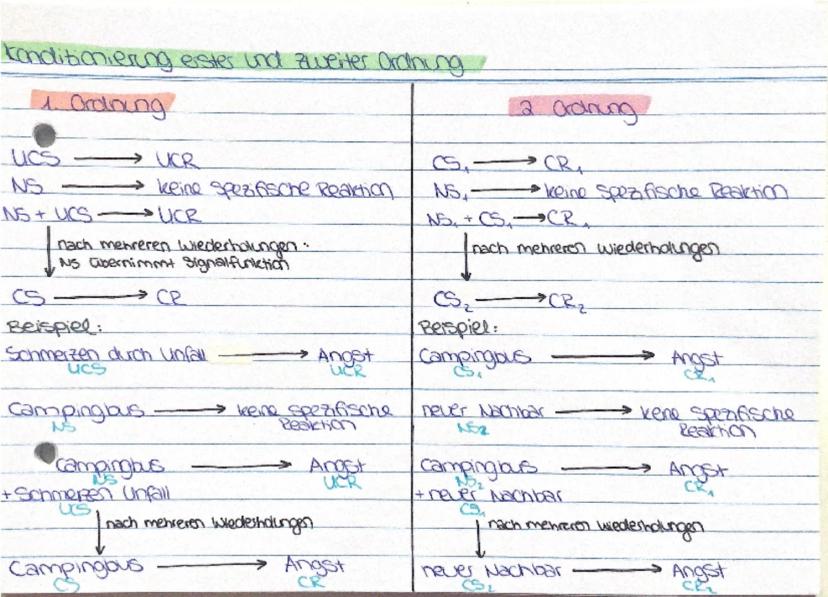 Konditionierung erster und zweiter Ordnung
1. Ordnung
UCS → UCR
NS → keine spezifische Reaktion
NS + UCS → UCR
nach mehreren Wiederholungen:
NS übernimmt Signalfunktion
CS → CR
Beispiel:
Schmerzen durch Unfall → Angst
UCS UCR
Campingbus → keine spezifische
NS Reaktion
Campingbus → Angst
NS UCR
+ Schmerzen Unfall
UCS
nach mehreren Wiederholungen
Campingbus → Angst
CS CR
2 Ordnung
CS₁ → CR₁
NS₁ → keine spezifische Reaktion
NS₁ + CS₁ → CR₁
nach mehreren Wiederholungen
CS₂ → CR₂
Beispiel:
Campingbus → Angst
CS₁ CR₁
neuer Nachbar → kene spezifische
NS₂ Reaktion
Campingbus → Angst
NS₂ CR₁
+ neuer Nachbar
CS₁
nach mehreren Wiederholungen
neuer Nachbar → Angst
CS₂ CR₂